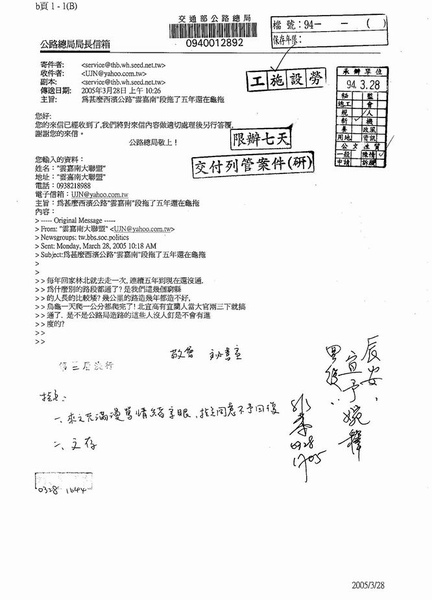 b頁 1 - 1(B)
交通部公路總局
0940012892
檔號：94- - ( )
保存年限：
公路總局局長信箱
寄件者： <service@thb.wh.seed.net.tw>
收件者： <UJN@yahoo.com.tw>
副本： <service@thb.wh.seed.net.tw>
傳送日期： 2005年3月28日 上午 10:26
主旨： 爲甚麼西濱公路"雲嘉南"段拖了五年還在龜拖
工施設勞
承辦單位
94.3.28
限辦七天
交付列管案件(研)
您好：
您的來信已經收到了,我們將對來信內容做適切處理後另行答覆,
謝謝您的來信。
公路總局敬上！
您輸入的資料：
姓名： "雲嘉南大聯盟"
地址： "雲嘉南大聯盟"
電話： 0938218988
電子信箱： UJN@yahoo.com.tw
主旨： 爲甚麼西濱公路"雲嘉南"段拖了五年還在龜拖
內容：
> ----- Original Message -----
> From: "雲嘉南大聯盟" <UJN@yahoo.com.tw>
> Newsgroups: tw.bbs.soc.politics
> Sent: Monday, March 28, 2005 10:18 AM
> Subject:爲甚麼西濱公路"雲嘉南"段拖了五年還在龜拖
>
>
>> 每年回家林北就去走一次, 連續五年到現在還沒通.
>> 爲什麼別的路段都通了? 是我們這幾個窮縣
>> 的人長的比較矮? 幾公里的路造幾年都造不好,
>> 烏龜一天爬一公分都爬完了! 北宜高有宜蘭人當大官兩三下就搞
>> 通了. 是不是公路局造路的這些人沒人釘是不會有進
>> 度的?
擬：
一、來文充滿漫罵情緒字眼，擬同意不予回復
二、文存
0328
1705
0328 1644
2005/3/28